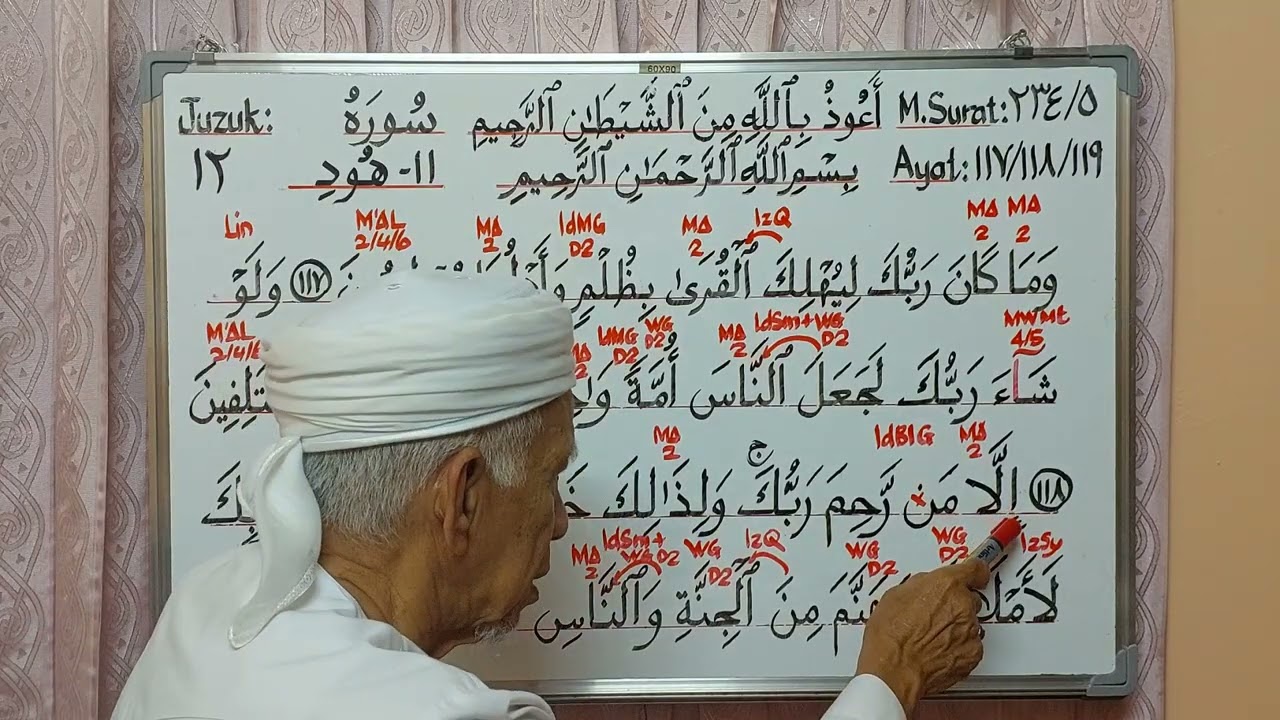 60X90
Juzuk: سُورَةُ أَعُوذُ بِٱللَّهِ مِنَ ٱلشَّيْطَٰنِ ٱلرَّجِيمِ M.Surat: ٢٣٤/٥
١٢ ١١- هُودٍ بِسْمِ ٱللَّهِ ٱلرَّحْمَٰنِ ٱلرَّحِيمِ Ayat: ١١٧/١١٨/١١٩
Lin M'AL 2/4/6 MA 2 IdMG D2 MA 2 IzQ MA 2 MA 2
وَمَا كَانَ رَبُّكَ لِيُهْلِكَ ٱلْقُرَىٰ بِظُلْمٍ ١١٧ وَلَوْ
M'AL MA 2 IdSm+WG D2 MWMt 4/5 WG D2
شَاءَ رَبُّكَ لَجَعَلَ ٱلنَّاسَ أُمَّةً تَلِفِينَ
MA 2 ج IdBIG MA 2
١١٨ إِلَّا مَن رَّحِمَ رَبُّكَ وَلِذَٰلِكَ
MA 2 IdSm+WG D2 WG D2 IzQ WG D2 WG D2 IzSy
مِنَ ٱلْجِنَّةِ وَٱلنَّاسِ